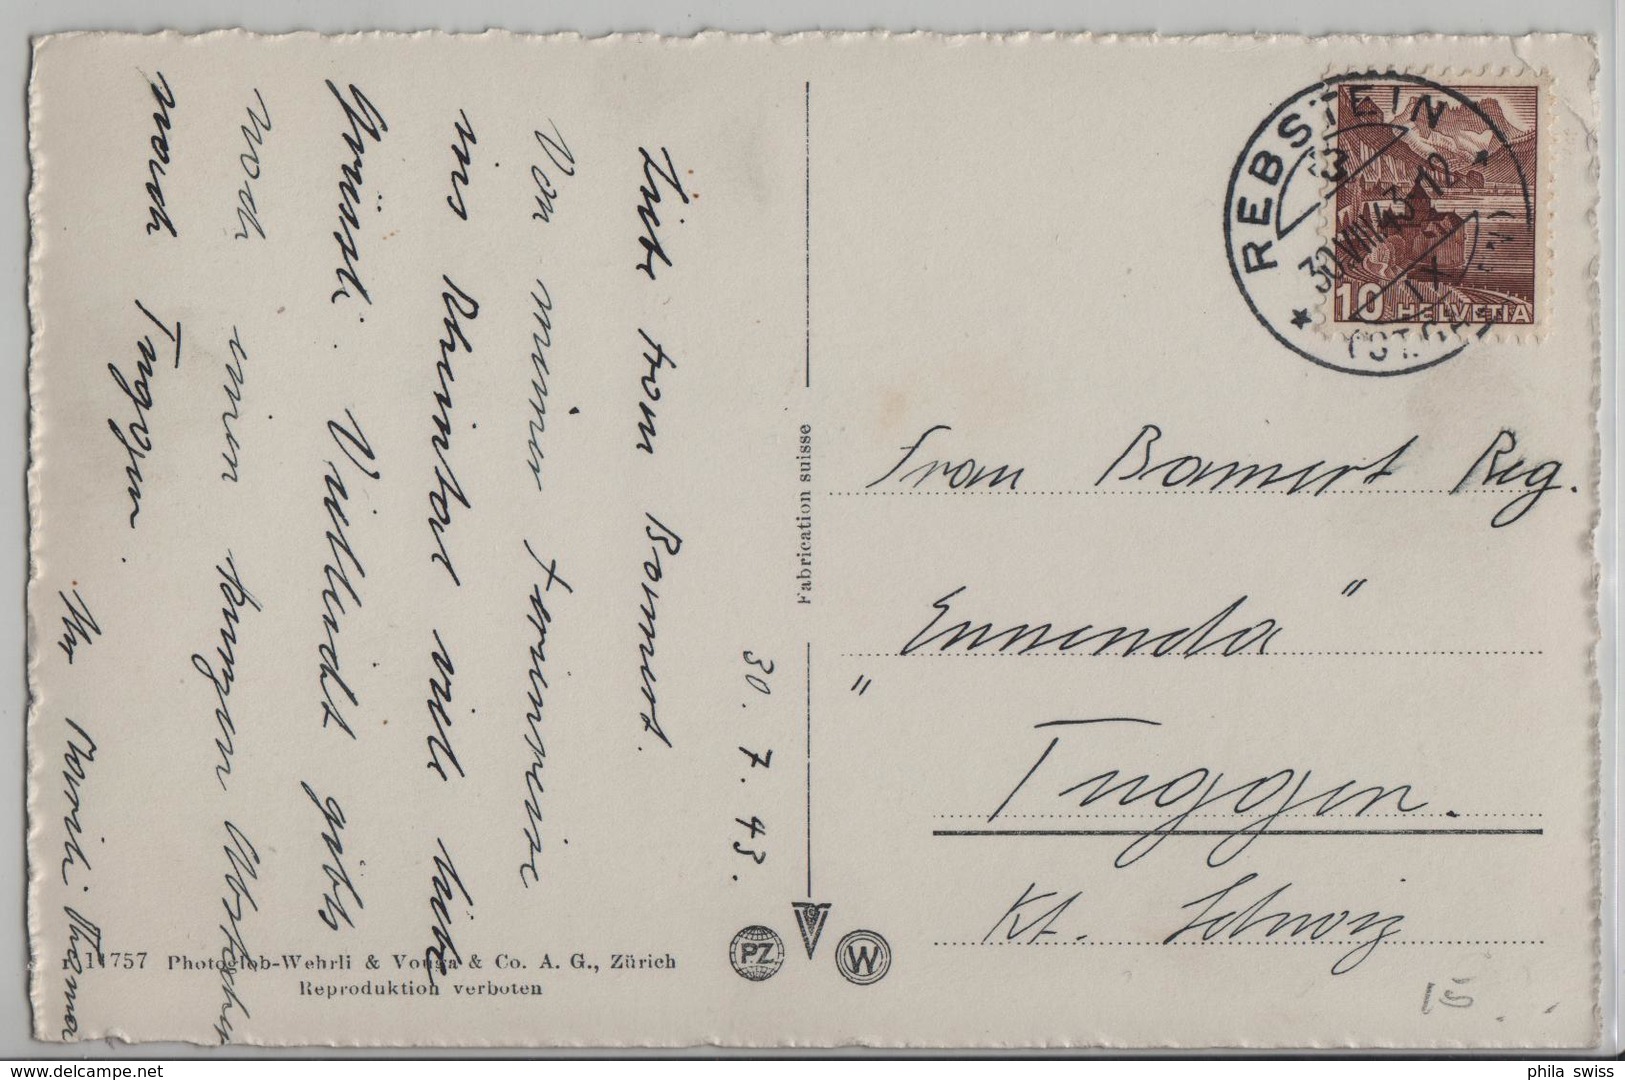 30. 7. 43.
Liebe Frau Bamert.
Von meiner Ferienreise
ins Rheintal viele liebe
Grüsse. Vielleicht gibts
noch einen kurzen Abstecher
nach Tuggen.
Ihr Thoma
Fabrication suisse
REBSTEIN
30.VII.43-12
IX
(ST.GALLEN)
10 HELVETIA
Frau Bamert Reg.
"Ennenda"
Tuggen.
Kt. Schwyz
PZ
W
11757 Photoglob-Wehrli & Vouga & Co. A. G., Zürich
Reproduktion verboten
15
phila swiss